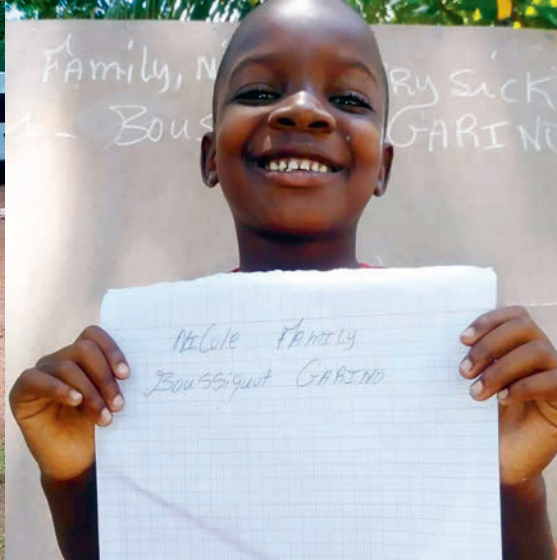 Family, N RY Sick
- Bous GARINO
Nicole Family
Boussiquot GARINO